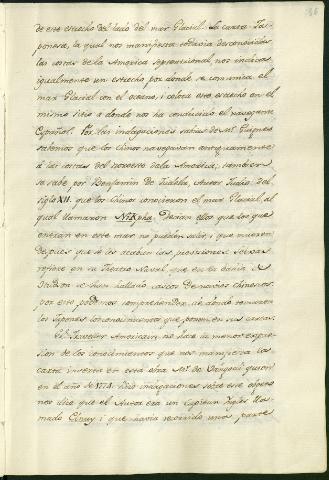 de este estrecho del lado del mar Glacial. La carta Ja-
ponesa, la qual nos manifiesta todavia desconocidas
las costas de la America septentrional nos indica
igualmente un estrecho por donde se comunica el
mar Glacial con el oceano, i coloca este estrecho en el
mismo sitio a donde nos ha conducido el navegante
Español. Por las indagaciones sabias de Mr. Guignes
sabemos que los Chinos navegavan antiguamente
a las costas del noroeste de la America; tambien
se sabe por Benjamin de Tudela, Autor Judio del
siglo XII. que los Chinos conocieron el mar Glacial, al
qual llamaron Nikpha. Decian ellos que los que
entran en este mar no pueden salir, i que mueren
despues que se les acaban las provisiones.
refiere en su Theatro Naval que en la bahia de
Hudson se han hallado cascos de navios chinescos:
por esto podemos comprehender de donde tomaron
los Japones los conocimientos que ponen en sus cartas.
El Traveller Americain, no hace la menor expre-
sion de los conocimientos que nos manifiesta la
carta inserta en esta obra. Mr. de Vaugondi quien
en el año de 1774. hizo indagaciones sobre este objeto
nos dice que el Autor era un Capitan Ingles lla-
mado Cluny i que havia recorrido una parte